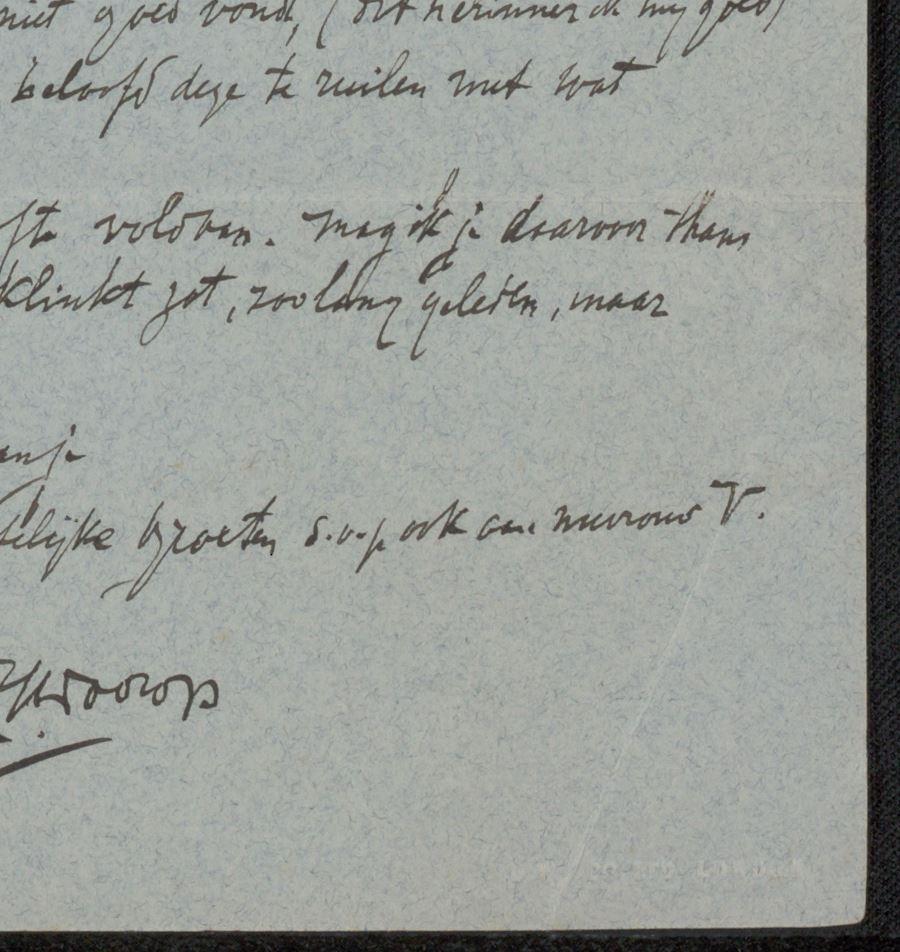 niet goed vond, (dit herinner ik mij goed)
beloofd deze te ruilen met wat
fte voldoen. mag ik je daarvoor thans
klinkt zot, zoo lang geleden, maar
anje
telijke groeten s.v.p ook aan mevrouw V.
Toorop